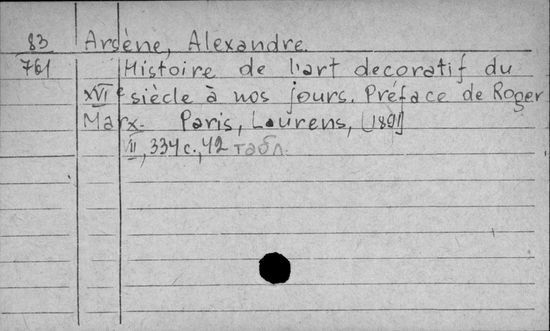 83 Arsène, Alexandre.
761 Histoire de l'art decoratif du
XVIe siècle à nos jours. Préface de Roger
Marx. Paris, Laurens, [1891]
II, 334 с., 42 табл.